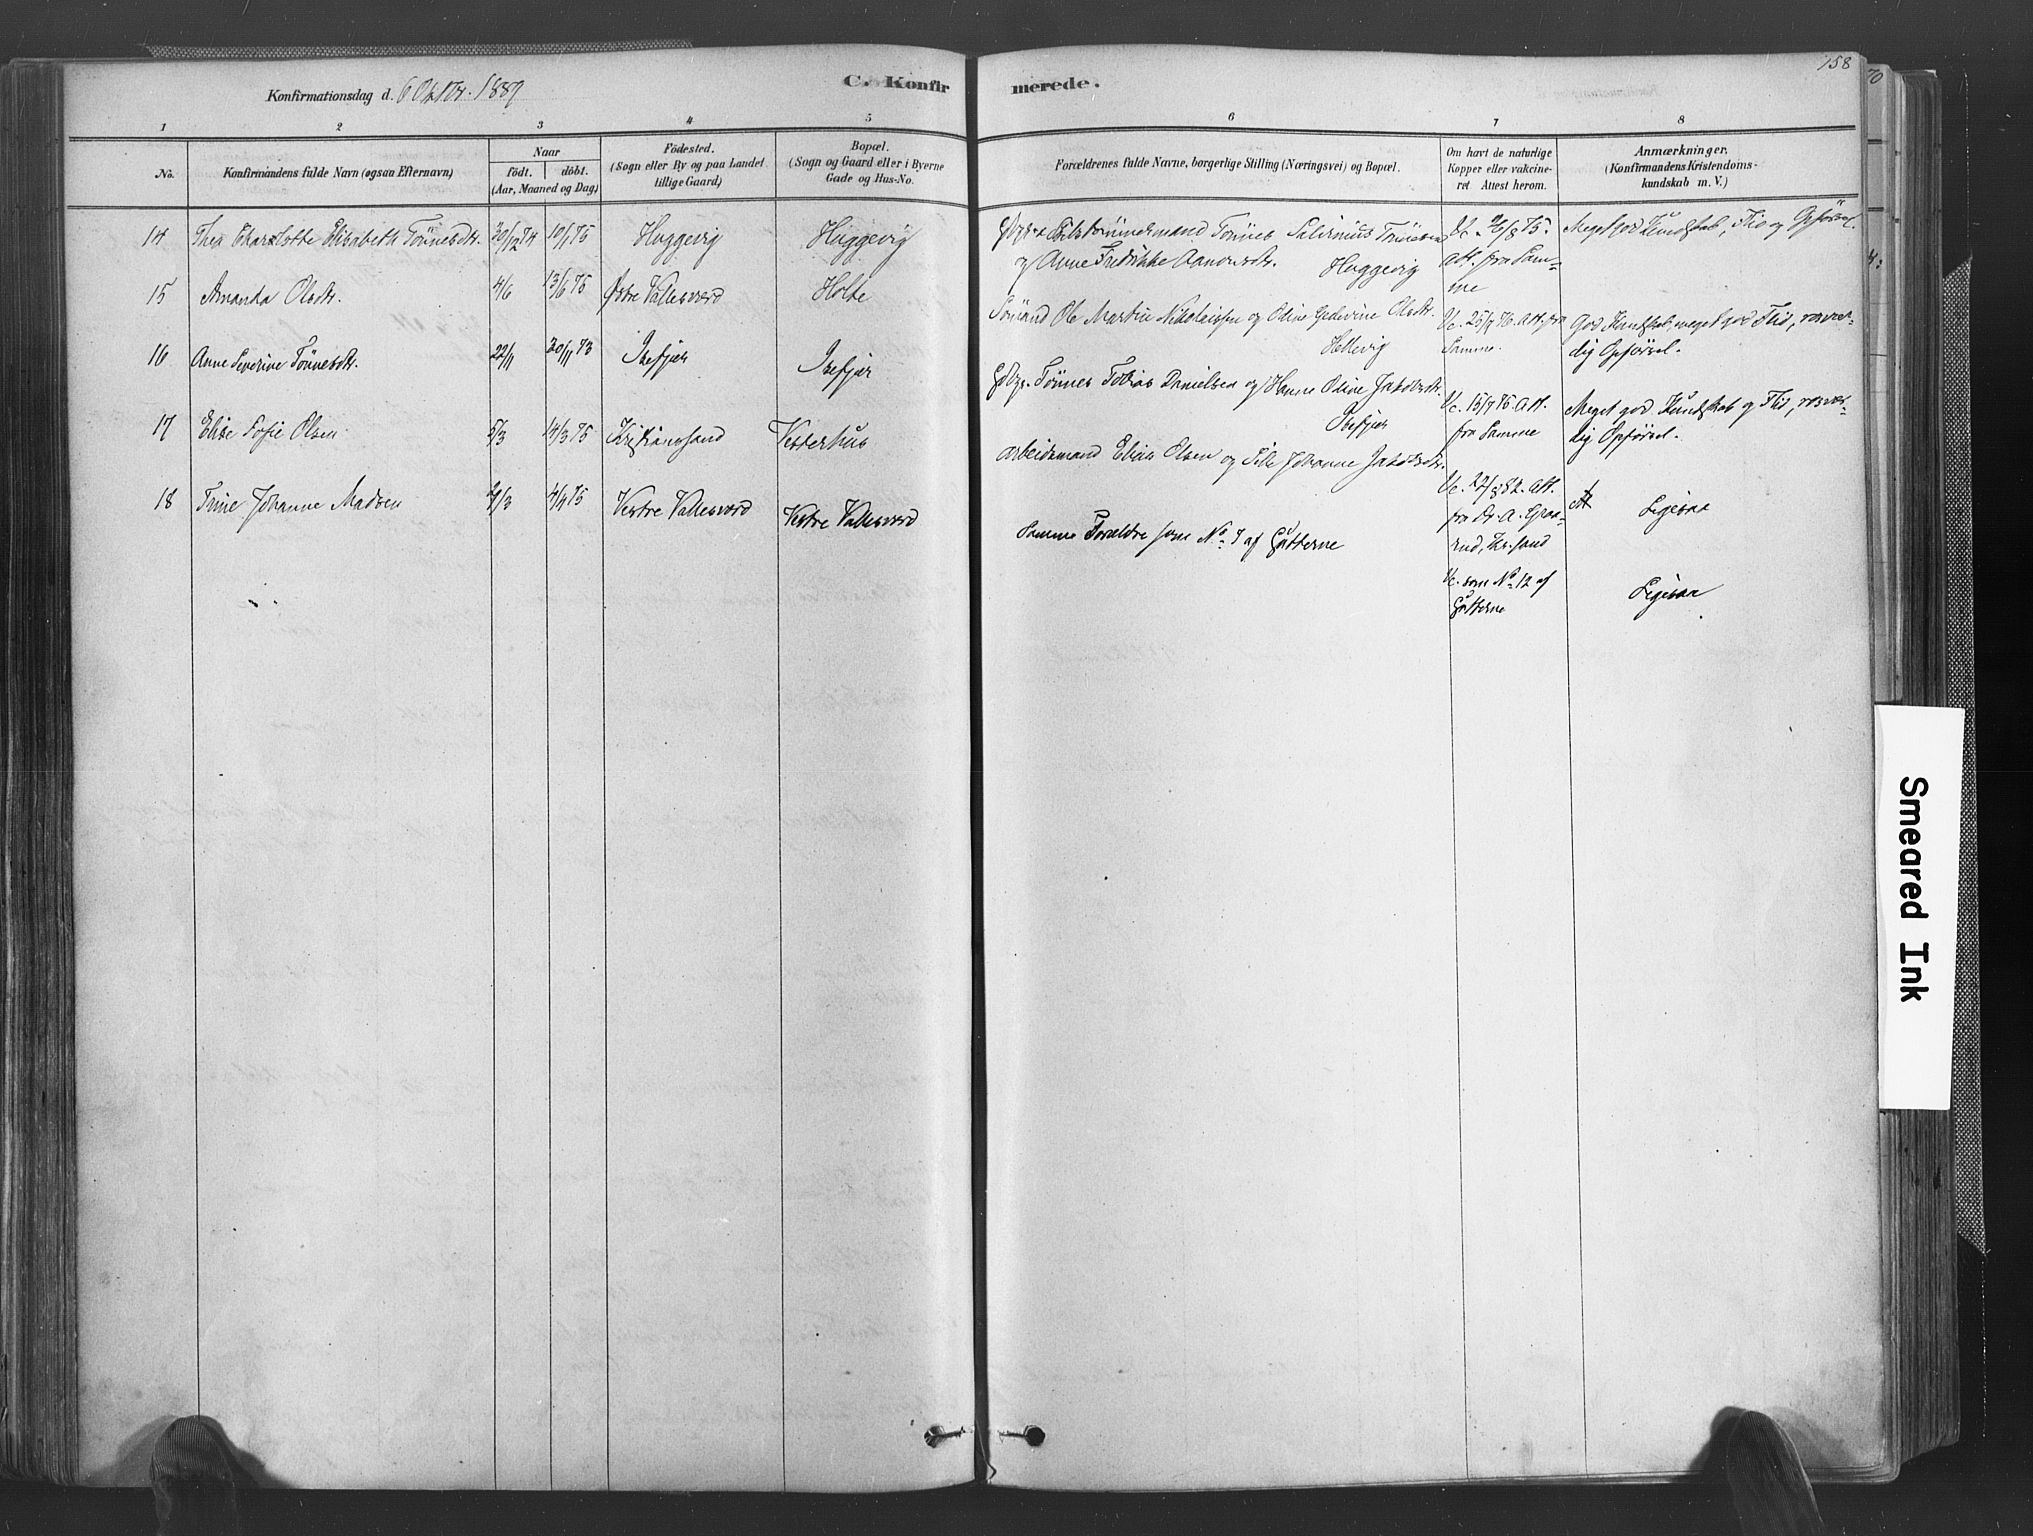 158
Konfirmationsdag d. 6 Oktbr. 1889
C. Konfirmerede.
1 2 3 4 5 6 7 8
No.
Konfirmandens fulde Navn (ogsaa Efternavn)
Naar
født. döbt.
(Aar, Maaned og Dag)
Födested.
(Sogn eller By og paa Landet
tillige Gaard)
Bopæl.
(Sogn og Gaard eller i Byerne
Gade og Hus-No.
Forældrenes fulde Navne, borgerlige Stilling (Næringsvei) og Bopæl.
Om havt de naturlige
Kopper eller vakcine-
ret Attest herom.
Anmærkninger.
(Konfirmandens Kristendoms-
kundskab m. V.)
14 Thea Charlotte Elisabeth Tönnesdtr. 30/12 74 10/1 75 Huggevig Huggevig
Tömmermand Tönnes Salirnius Tönnesen
og Anne Fredrikke Aanensdtr. Huggevig
Vc. 26/8 75.
Att. fra Sam-
me
Meget god Kundskab, Flid og Opførsel.
15 Amanda Olsdtr. 4/6 13/6 75 Østre Vallesværd Holte
Sömand Ole Martin Nikolaissen og Oline Gedevine Olsdtr.
Hellevig
Vc. 25/7 76. Att. fra
Samme.
God Kundskab, meget god Flid, rosvær-
dig Opførsel.
16 Anne Severine Tönnesdtr. 22/11 30/11 73 Isefjær Isefjær
Gdbgr. Tönnes Tobias Danielsen og Hanne Oline Jakobsdtr.
Isefjær
Vc. 15/7 76. Att.
fra Samme
Meget god Kundskab og Flid, rosvær-
dig Opførsel.
17 Elise Sofie Olsen 5/3 14/3 75 Kristianssand Vesterhus
Arbeidsmand Elias Olsen og Sille Johanne Jakobsdtr.
Vc. 22/8 82. Att.
fra Dr. A. Graa-
rud, Kr.sand
Ligesaa
18 Trine Johanne Madsen /3 4/4 75 Vestre Vallesværd Vestre Vallesværd
Samme Forældre som No. 7 af Gutterne
Vc. som No. 12 af
Gutterne
Ligesaa
70
Smeared Ink